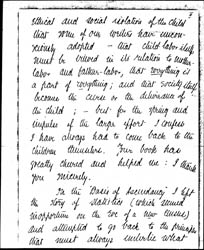 ethical and social isolation of the child
that some of our writers have uncon-
sciously adopted — that child labor itself
must be viewed in its relation to mother-
labor and father-labor, that everything is
a part of everything; and that society itself
become the curse or the deliverance of
the child; — but for the spring and
impulse of the larger effort I confess
I have always had to come back to the
children themselves. Your book has
greatly cheered and helped me: I thank
you sincerely.
In the Basis of Ascendancy I left
the story of statistics (which seemed
inopportune on the eve of a new Census)
and attempted to go back to the principles
that must always underlie what